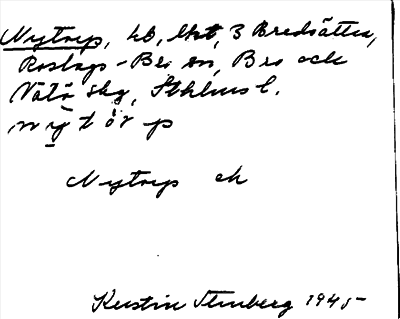 Nytorp, lb, lht, 3 Bredsätter,
Roslags-Bro sn, Bro och
Vätö skg, Sthlms l.
nỹtὸrp
Nytorp ek
Kerstin Stenberg 1945